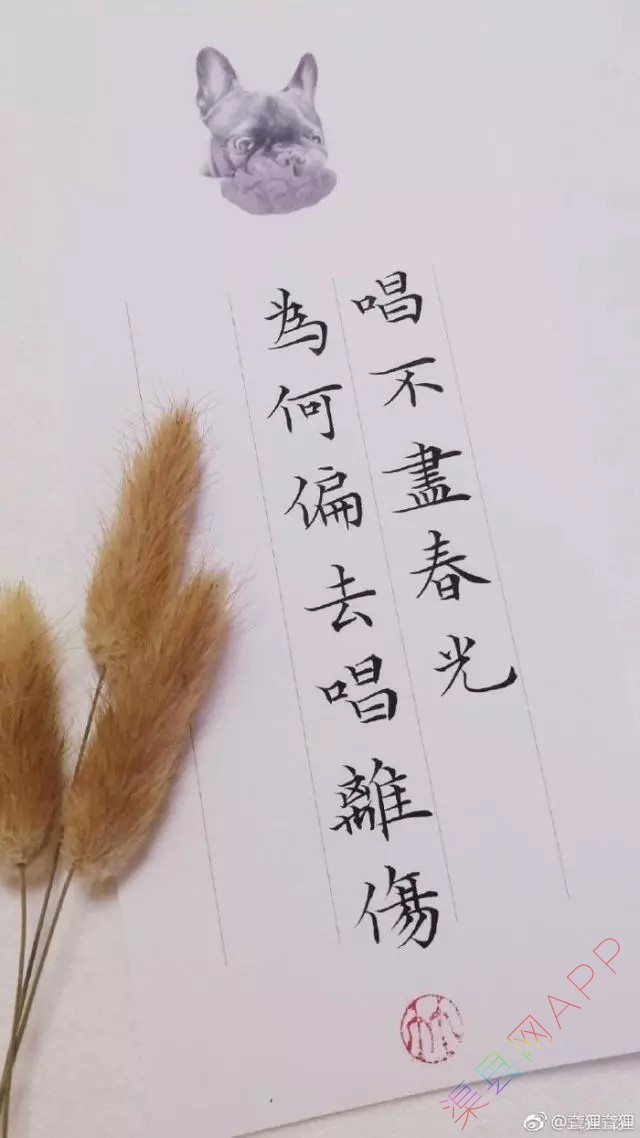 唱不盡春光
為何偏去唱離傷
渠县网APP
@聋狸聋狸